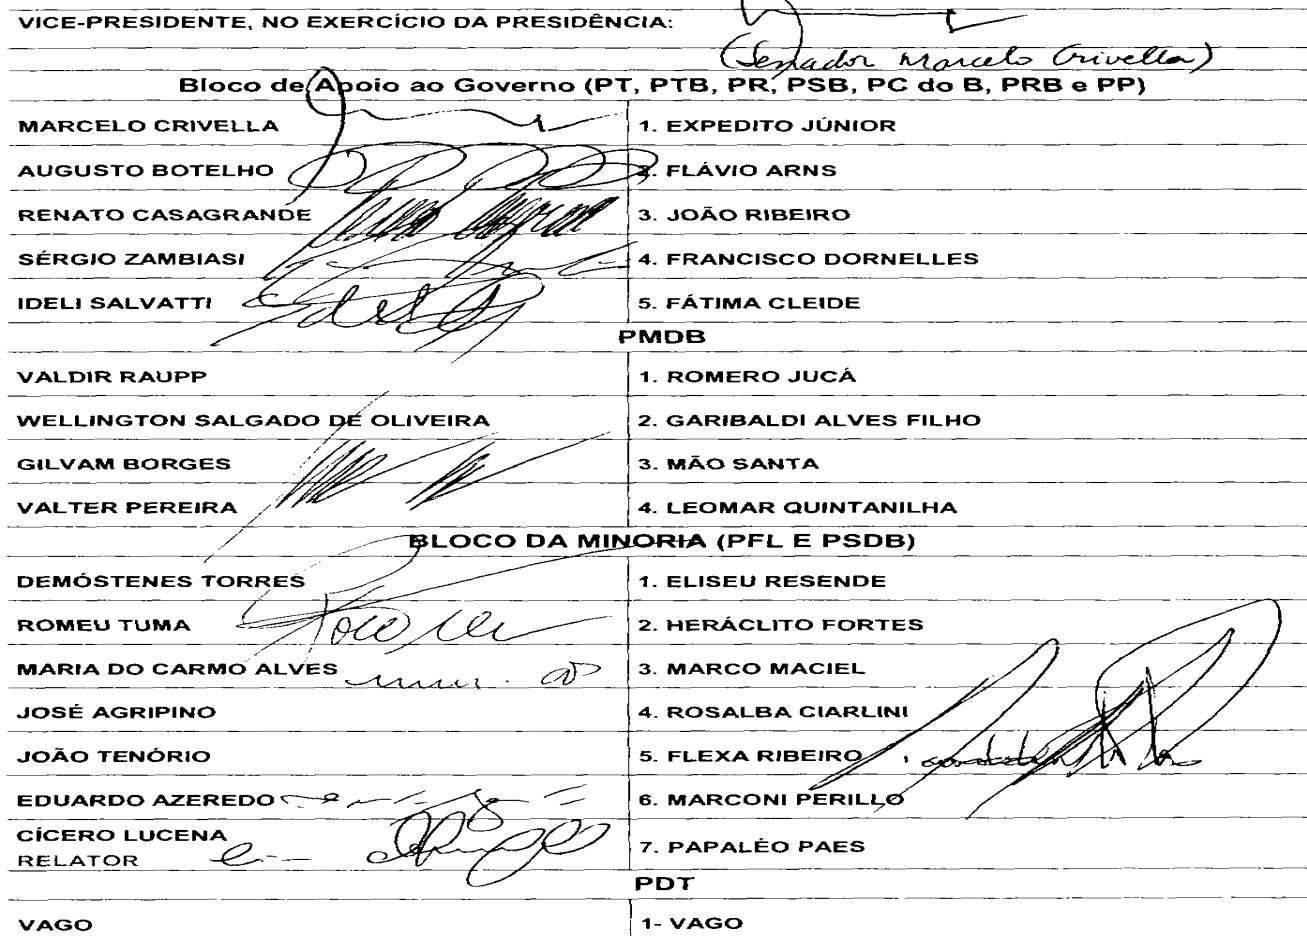 VICE-PRESIDENTE, NO EXERCÍCIO DA PRESIDÊNCIA:
(Senador Marcelo Crivella)
Bloco de Apoio ao Governo (PT, PTB, PR, PSB, PC do B, PRB e PP)
MARCELO CRIVELLA 1. EXPEDITO JÚNIOR
AUGUSTO BOTELHO 2. FLÁVIO ARNS
RENATO CASAGRANDE 3. JOÃO RIBEIRO
SÉRGIO ZAMBIASI 4. FRANCISCO DORNELLES
IDELI SALVATTI 5. FÁTIMA CLEIDE
PMDB
VALDIR RAUPP 1. ROMERO JUCÁ
WELLINGTON SALGADO DE OLIVEIRA 2. GARIBALDI ALVES FILHO
GILVAM BORGES 3. MÃO SANTA
VALTER PEREIRA 4. LEOMAR QUINTANILHA
BLOCO DA MINORIA (PFL E PSDB)
DEMÓSTENES TORRES 1. ELISEU RESENDE
ROMEU TUMA 2. HERÁCLITO FORTES
MARIA DO CARMO ALVES 3. MARCO MACIEL
JOSÉ AGRIPINO 4. ROSALBA CIARLINI
JOÃO TENÓRIO 5. FLEXA RIBEIRO
EDUARDO AZEREDO 6. MARCONI PERILLO
CÍCERO LUCENA
RELATOR 7. PAPALÉO PAES
PDT
VAGO 1- VAGO